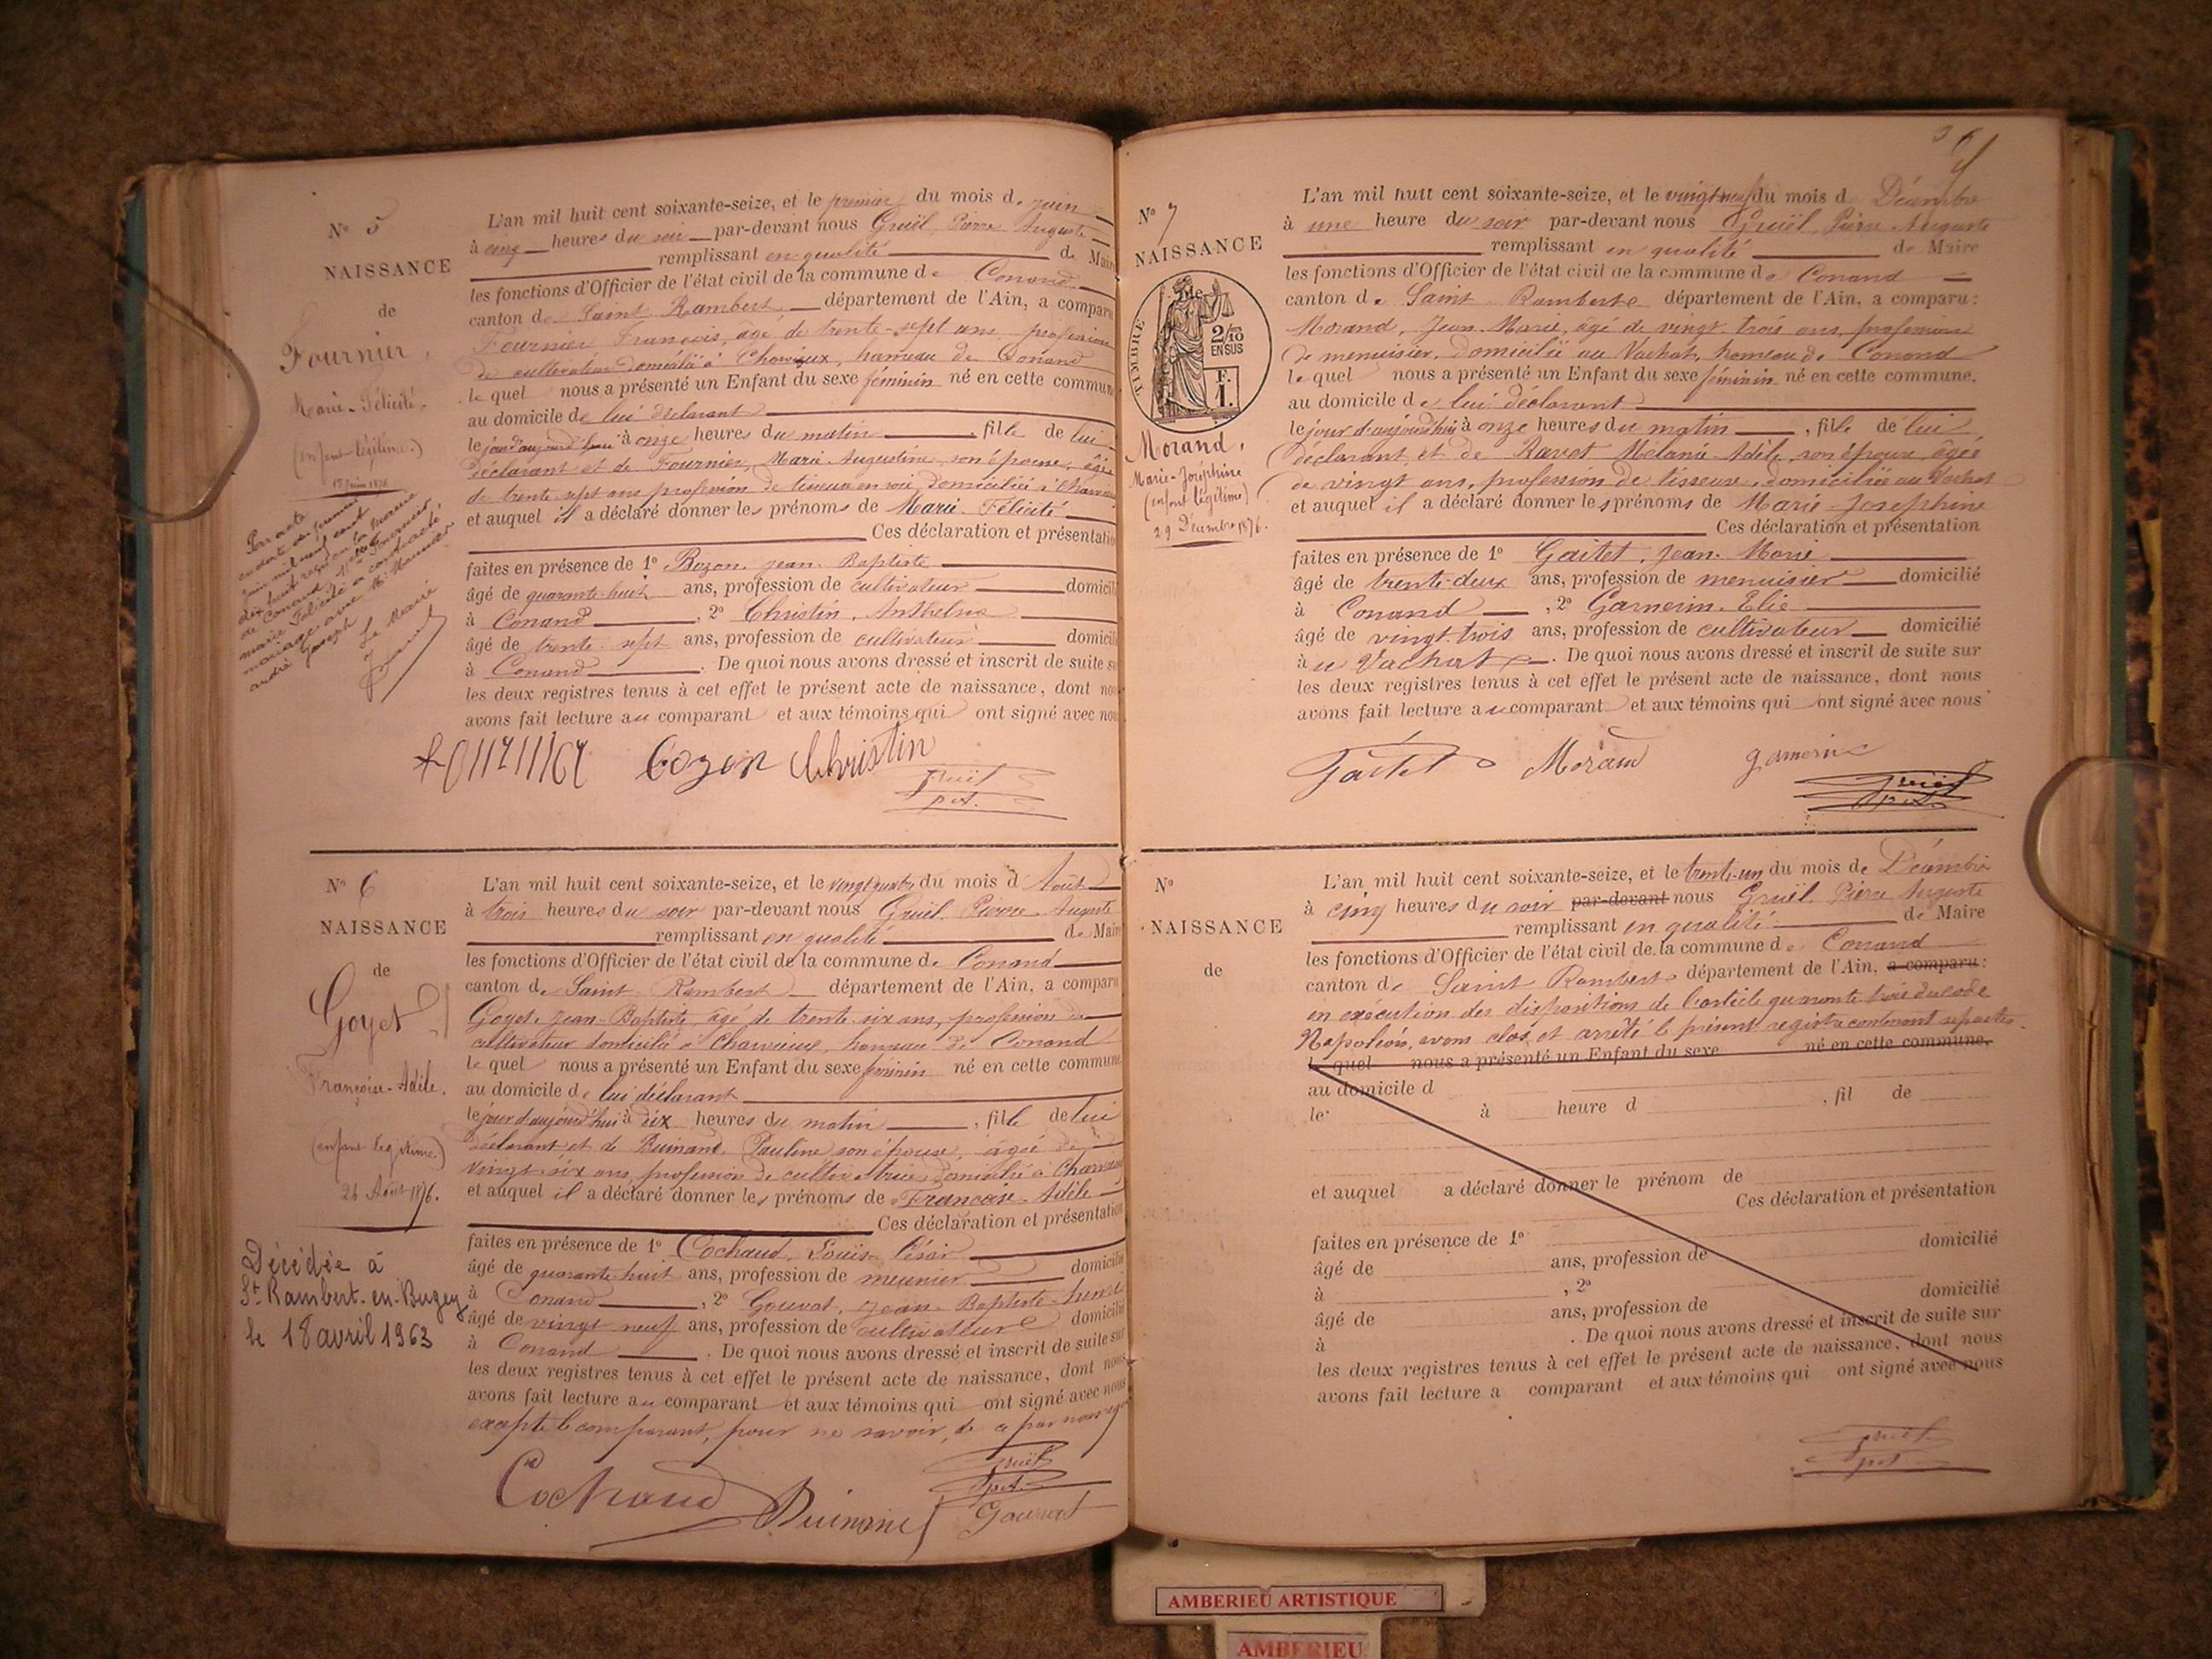 N° 5
NAISSANCE
de
Fournier,
Marie-Félicité.
(enfant légitime.)
1er Juin 1876
Par acte
en date du premier
juin mil neuf cent
dix huit reçu en la mairie
de Conand, Melle Fournier
marie Félicité a contracté
mariage avec Mr
andré Joseph
Le Maire
L'an mil huit cent soixante-seize, et le premier du mois de juin
à cinq heures du soir par-devant nous Gruël, Pierre Auguste
remplissant en qualité de Maire
les fonctions d'Officier de l'état civil de la commune de Conand
canton de Saint Rambert département de l'Ain, a comparu
Fournier François, âgé de trente-sept ans, profession
de cultivateur domicilié à Charvieux, hameau de Conand
lequel nous a présenté un Enfant du sexe féminin né en cette commune
au domicile de lui déclarant
le jour d'aujourd'hui à onze heures du matin, fille de lui
déclarant et de Fournier, Marie Augustine, son épouse, âgée
de trente-sept ans profession de tisseuse en soie, domiciliée à
et auquel il a déclaré donner les prénoms de Marie-Félicité
Ces déclaration et présentation
faites en présence de 1° Bozon, Jean-Baptiste
âgé de quarante-huit ans, profession de cultivateur domicilié
à Conand, 2° Christin, Anthelme
âgé de trente-sept ans, profession de cultivateur domicilié
à Conand. De quoi nous avons dressé et inscrit de suite su
les deux registres tenus à cet effet le présent acte de naissance, dont nou
avons fait lecture au comparant et aux témoins qui ont signé avec nou
Bozon Christin
Gruël
N° 6
NAISSANCE
de
Goyet
Françoise-Adèle.
(enfant légitime.)
26 Août 1876.
Décédée à
St Rambert-en-Bugey
le 18 avril 1963
L'an mil huit cent soixante-seize, et le vingt quatre du mois d'Août
à trois heures du soir par-devant nous Gruël, Pierre Auguste
remplissant en qualité de Maire
les fonctions d'Officier de l'état civil de la commune de Conand
canton de Saint Rambert département de l'Ain, a comparu
Goyet, Jean-Baptiste, âgé de trente-six ans, profession de
cultivateur domicilié à Charvieux, hameau de Conand
lequel nous a présenté un Enfant du sexe féminin né en cette commune
au domicile de lui déclarant
le jour d'aujourd'hui à dix heures du matin, fille de lui
déclarant et de Buinand, Pauline son épouse, âgée de
vingt-six ans, profession de cultivatrice, domiciliée à
et auquel il a déclaré donner les prénoms de Françoise-Adèle
Ces déclaration et présentation
faites en présence de 1° Cochaud, Louis-César
âgé de quarante-huit ans, profession de meunier domicilié
à Conand, 2° Gouvat, Jean-Baptiste
âgé de vingt neuf ans, profession de cultivateur domicilié
à Conand. De quoi nous avons dressé et inscrit de suite sur
les deux registres tenus à cet effet le présent acte de naissance, dont nous
avons fait lecture au comparant et aux témoins qui ont signé avec nous
excepté le comparant, pour ne savoir, de ce par nous
Gruël
Cochaud Buinand Gouvat
N° 7
NAISSANCE
de
TIMBRE
2/10
EN SUS
F.
1.
Morand,
Marie-Joséphine
(enfant légitime)
29 Décembre 1876.
L'an mil huit cent soixante-seize, et le vingt neuf du mois d Décembre
à une heure du soir par-devant nous Gruël, Pierre Auguste
remplissant en qualité de Maire
les fonctions d'Officier de l'état civil de la commune de Conand
canton de Saint Rambert département de l'Ain, a comparu:
Morand, Jean-Marie, âgé de vingt-trois ans, profession
de menuisier, domicilié au Vachat, hameau de Conand
lequel nous a présenté un Enfant du sexe féminin né en cette commune,
au domicile de lui déclarant
le jour d'aujourd'hui à onze heures du matin, fille de lui
déclarant et de Ravot Mélanie-Adèle, son épouse, âgée
de vingt ans, profession de tisseuse, domiciliée au Vachat
et auquel il a déclaré donner les prénoms de Marie-Josephine
Ces déclaration et présentation
faites en présence de 1° Gaitet, Jean-Marie
âgé de trente-deux ans, profession de menuisier domicilié
à Conand, 2° Garnerin, Elie
âgé de vingt-trois ans, profession de cultivateur domicilié
au Vachat. De quoi nous avons dressé et inscrit de suite sur
les deux registres tenus à cet effet le présent acte de naissance, dont nous
avons fait lecture au comparant et aux témoins qui ont signé avec nous
Gaitet Morand garnerin
Gruël
N°
NAISSANCE
de
L'an mil huit cent soixante-seize, et le trente-un du mois de Décembre
à cinq heures du soir par-devant nous Gruël, Pierre Auguste
remplissant en qualité de Maire
les fonctions d'Officier de l'état civil de la commune de Conand
canton de Saint Rambert département de l'Ain, a comparu:
en exécution des dispositions de l'article quarante trois du code
Napoléon, avons clos et arrêté le présent registre contenant sept actes.
l quel nous a présenté un Enfant du sexe né en cette commune,
au domicile d
le à heure d , fil de
et auquel a déclaré donner le prénom de
Ces déclaration et présentation
faites en présence de 1°
âgé de ans, profession de domicilié
à , 2°
âgé de ans, profession de domicilié
à . De quoi nous avons dressé et inscrit de suite sur
les deux registres tenus à cet effet le présent acte de naissance, dont nous
avons fait lecture a comparant et aux témoins qui ont signé avec nous
Gruël
AMBERIEU ARTISTIQUE
AMBERIEU